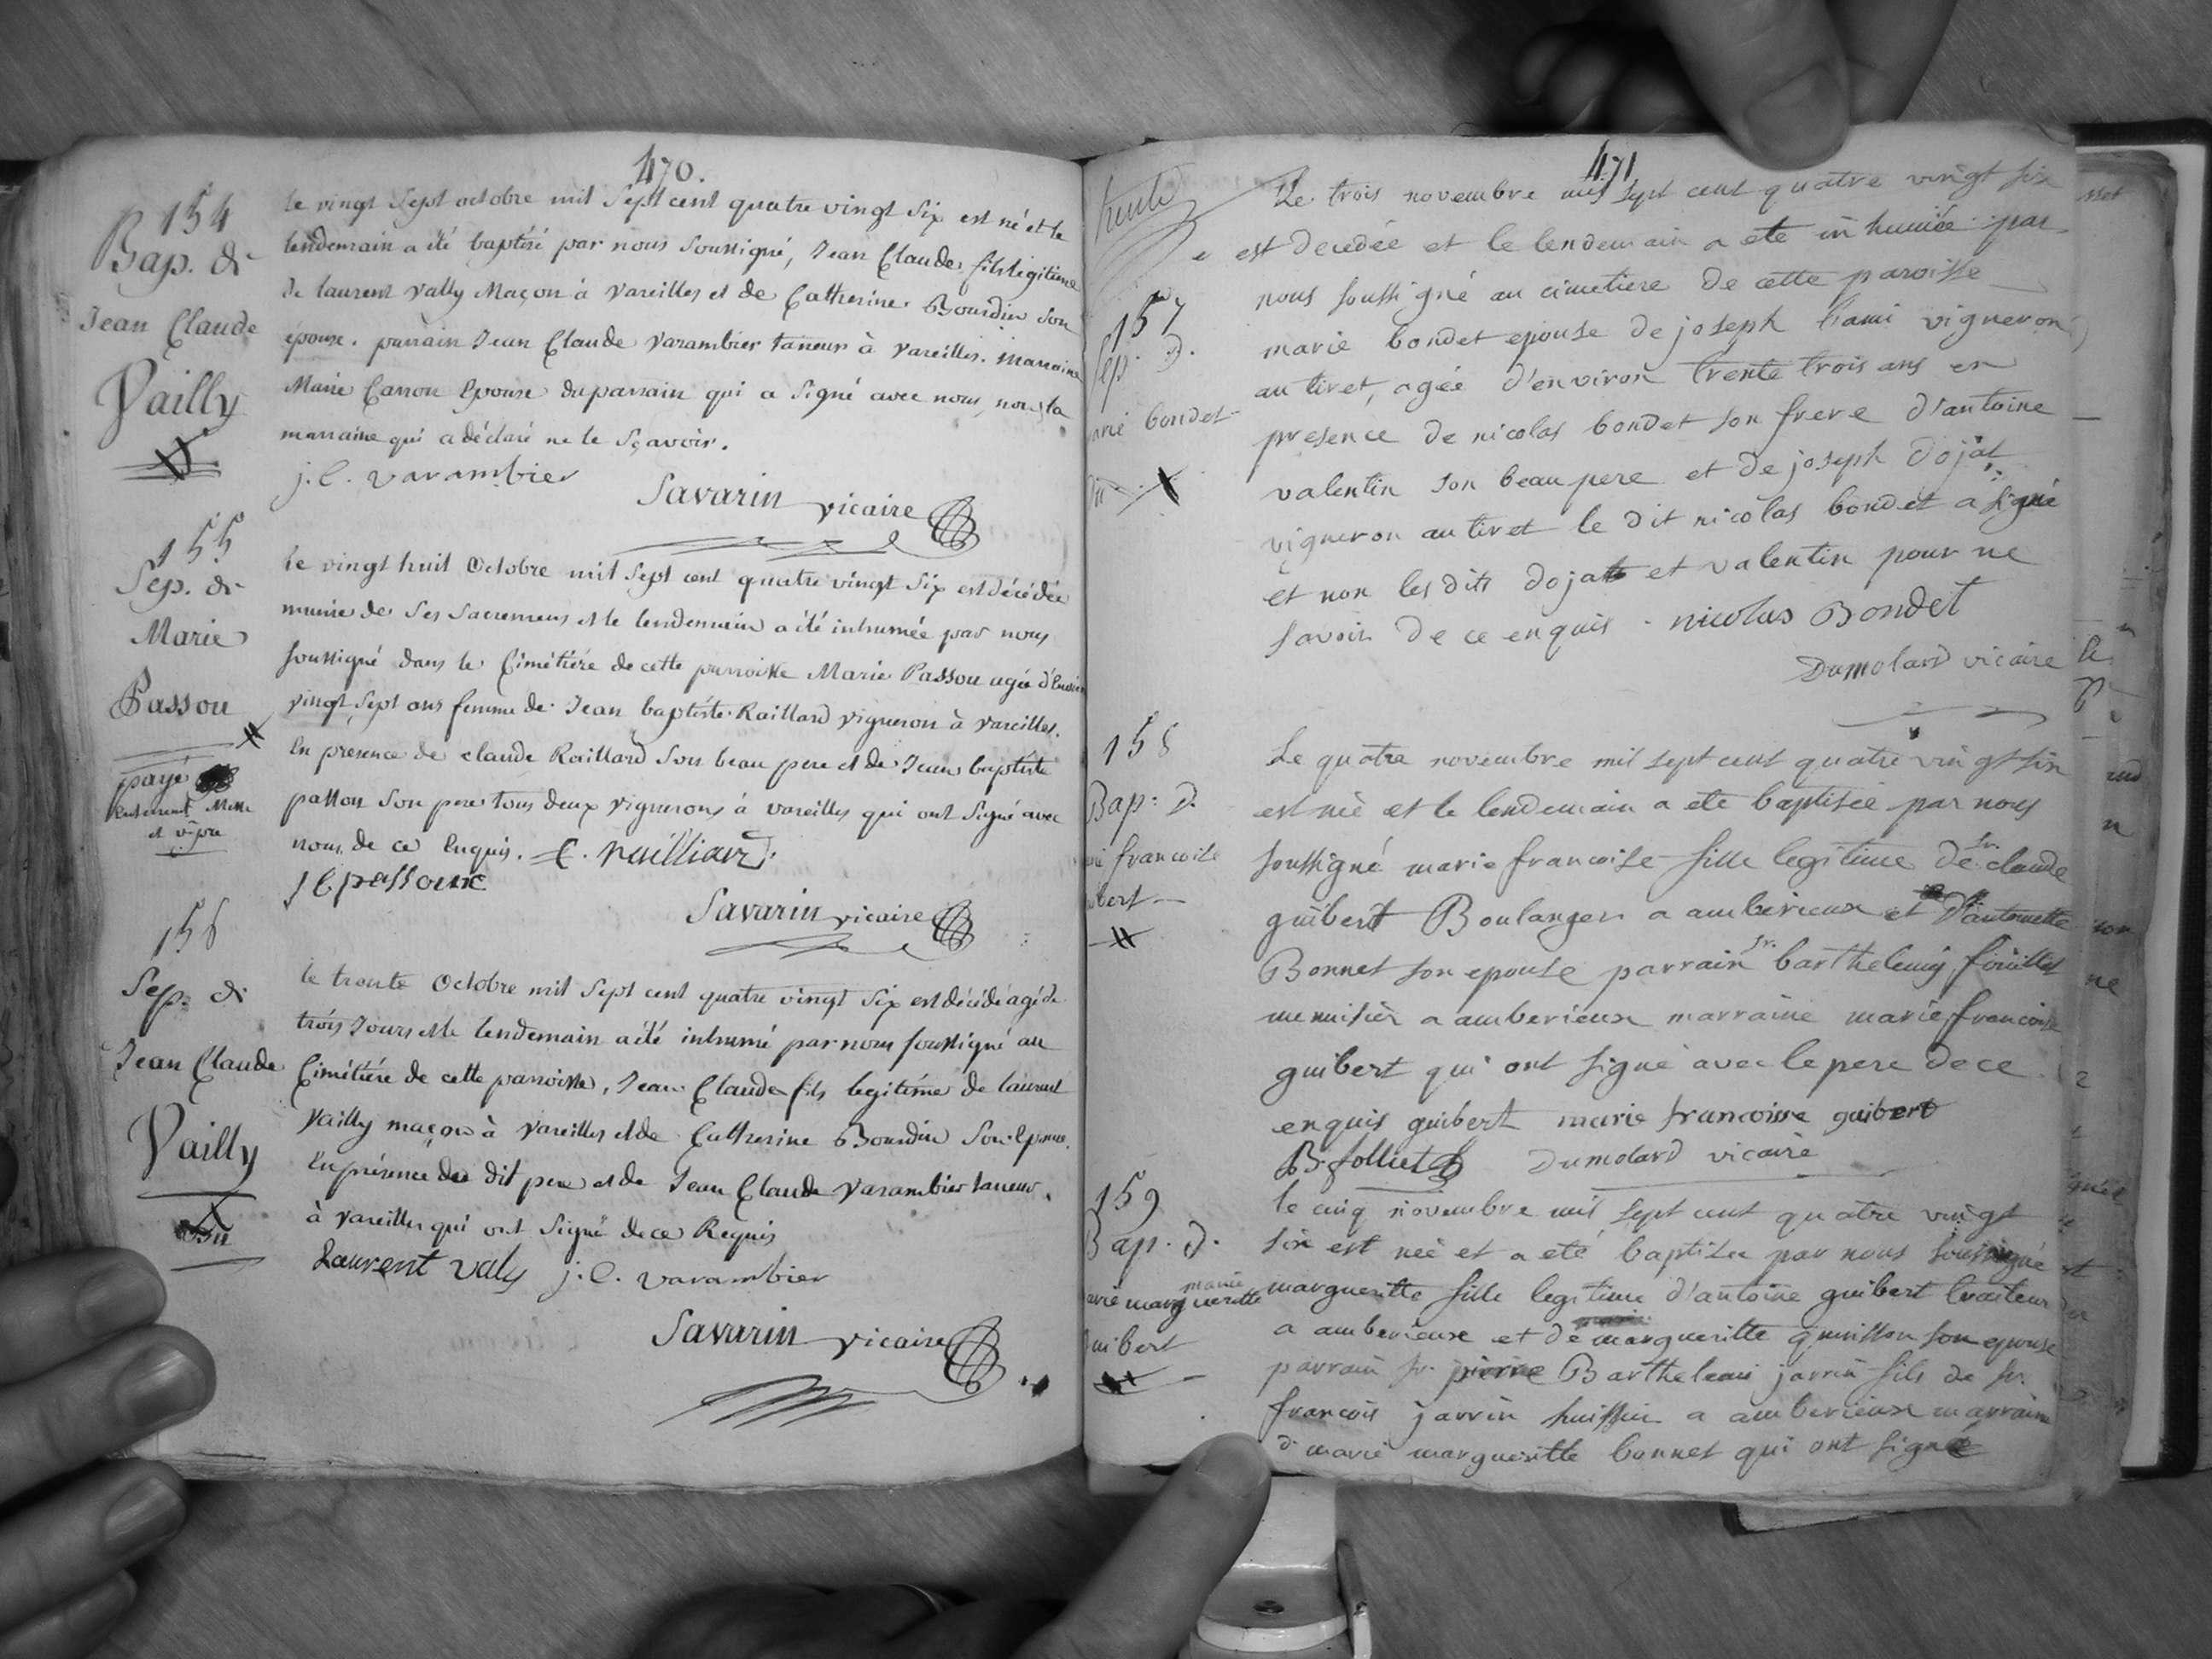 470.
154
Bap. de
Jean Claude
Vailly
le vingt Sept octobre mil Sept cent quatre vingt Six est né et le
lendemain a été baptisé par nous Soussigné, Jean Claude fils légitime
de laurent Vally Maçon à Vareilles et de Catherine Bourdin Son
épouse. parrain Jean Claude Varambier taneur à Vareilles. marraine
Marie Carron Epouse du parrain qui a Signé avec nous, non la
marraine qui a déclaré ne le Sçavoir.
j. C. varambier
Savarin vicaire
155
Sep. de
Marie
Passou
payé
Enterrement Messe
et
le vingt huit Octobre mil Sept cent quatre vingt Six est décédée
munie de Ses Sacremens et le lendemain a été inhumée par nous
soussigné dans le Cimétiére de cette parroisse Marie Passou agée d'Environ
vingt Sept ans femme de Jean baptiste Raillard vigneron à Vareilles.
En présence de claude Raillard Son beau pere et de Jean baptiste
passou Son pere tous deux vignerons à vareilles qui ont Signé avec
nous de ce Enquis. C. railliard
J b passoux
Savarin vicaire
156
Sep. de
Jean Claude
Vailly
le trente Octobre mil Sept cent quatre vingt Six est décédé agé de
trois Jours et le lendemain a été inhumé par nous soussigné au
Cimétiére de cette parroisse, Jean Claude fils legitime de laurent
Vailly maçon à Vareilles et de Catherine Bourdin Son Epouse.
En présence du dit pere et de Jean Claude Varambier taneur
à Vareilles qui ont Signé de ce Requis
Laurent valy j. C. varambier
Savarin vicaire
471
trente
157
Sep. d.
marie bondet
Le trois novembre mil sept cent quatre vingt six
est decedée et le lendemain a ete inhumée par
nous soussigné au cimetiere de cette paroisse
marie bondet epouse de joseph lami vigneron
au tiret, agée d'environ trente trois ans en
presence de nicolas bondet son frere d'antoine
valentin son beau pere et de joseph dojat
vigneron au tiret le dit nicolas bondet a signé
et non lesdits dojat et valentin pour ne
savoir de ce enquis. nicolas Bondet
Dumolard vicaire
158
Bap. d.
francoise
bert
Le quatre novembre mil sept cent quatre vingt six
est née et le lendemain a ete baptisée par nous
soussigné marie francoise fille legitime de sr. claude
guibert Boulanger a amberieux et d'antoinette
Bonnet son epouse parrain sr. barthelemy foilliet
menuisier a amberieux marraine marie francoise
guibert qui ont signe avec le pere de ce
enquis guibert marie francoise guibert
B. folliet Dumolard vicaire
159
Bap. d.
marie
marie margueritte
guibert
le cinq novembre mil sept cent quatre vingt
six est née et a eté baptisée par nous soussigné
margueritte fille legitime d'antoine guibert traiteur
a amberieux et de margueritte guinisson son epouse
parrain sr. pierre Barthelemi jarrin fils de sr.
francois jarrin huissier a amberieux marraine
d. marie margueritte bonnet qui ont signé